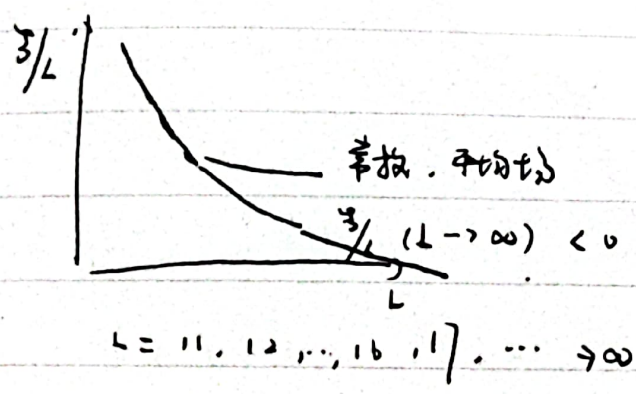 ξ/L
常数．平均场
ξ/L (L -> ∞) < 0
L
L = 11, 12, ..., 16, 17, ... → ∞